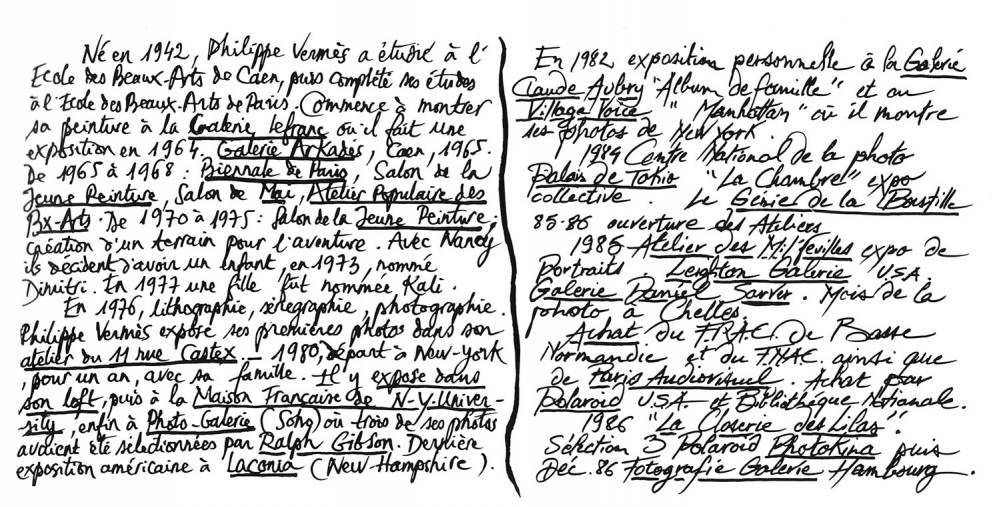 Né en 1942, Philippe Vermès a étudié à l'
Ecole des Beaux-Arts de Caen, puis complète ses études
à l'Ecole des Beaux-Arts de Paris. Commence à montrer
sa peinture à la Galerie Lefranc où il fait une
exposition en 1964. Galerie Arkadès, Caen, 1965.
De 1965 à 1968 : Biennale de Paris, Salon de la
Jeune Peinture, Salon de Mai, Atelier Populaire des
Bx-Arts. De 1970 à 1975 : Salon de la Jeune Peinture,
création d'un terrain pour l'aventure. Avec Nancy
ils décident d'avoir un enfant, en 1973, nommé
Dimitri. En 1977 une fille fut nommée Kali.
En 1976, lithographie, sérigraphie, photographie.
Philippe Vermès expose ses premières photos dans son
atelier du 11 rue Castex. – 1980, départ à New-York
, pour un an, avec sa famille. Il y expose dans
son loft, puis à la Maison Française de N-Y. Univer-
sity, enfin à Photo-Galerie (Soho) où trois de ses photos
avaient été sélectionnées par Ralph Gibson. Dernière
exposition américaine à Laconia (New Hampshire).
En 1982 exposition personnelle à la Galerie
Claude Aubry "Album de famille" et au
Village Voice "Manhattan" où il montre
ses photos de New York.
1984 Centre National de la photo
Palais de Tokio "La Chambre" expo
collective. Le Génie de la Bastille
85-86 ouverture des Ateliers
1986 Atelier des Millefeuilles expo de
Portraits. Leighton Galerie U.S.A.
Galerie Daniel Sarver. Mois de la
photo à Chelles.
Achat du F.R.A.C. de Basse
Normandie et du F.N.A.C. ainsi que
de Paris Audiovisuel. Achat par
Polaroid U.S.A. et Bibliothèque Nationale.
1986 "La Closerie des Lilas".
Sélection 3 Polaroid Photokina puis
Déc. 86 Fotografie Galerie Hambourg.